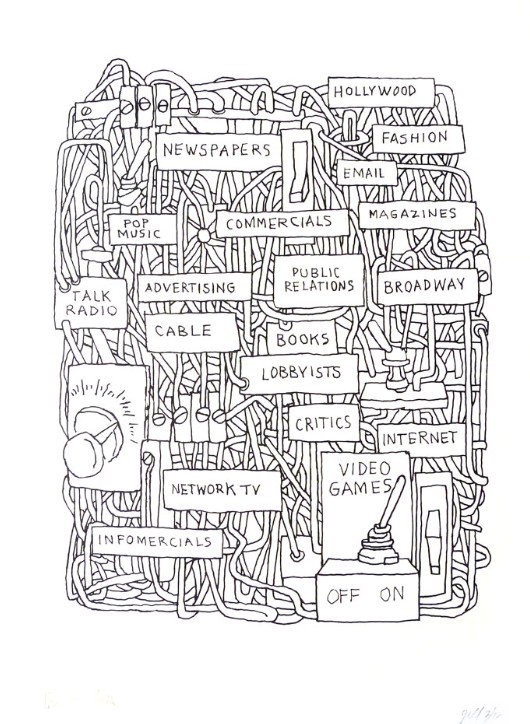 HOLLYWOOD
FASHION
NEWSPAPERS
EMAIL
MAGAZINES
POP
MUSIC
COMMERCIALS
PUBLIC
RELATIONS
ADVERTISING
BROADWAY
TALK
RADIO
CABLE
BOOKS
LOBBYISTS
CRITICS
INTERNET
VIDEO
GAMES
NETWORK TV
INFOMERCIALS
OFF ON